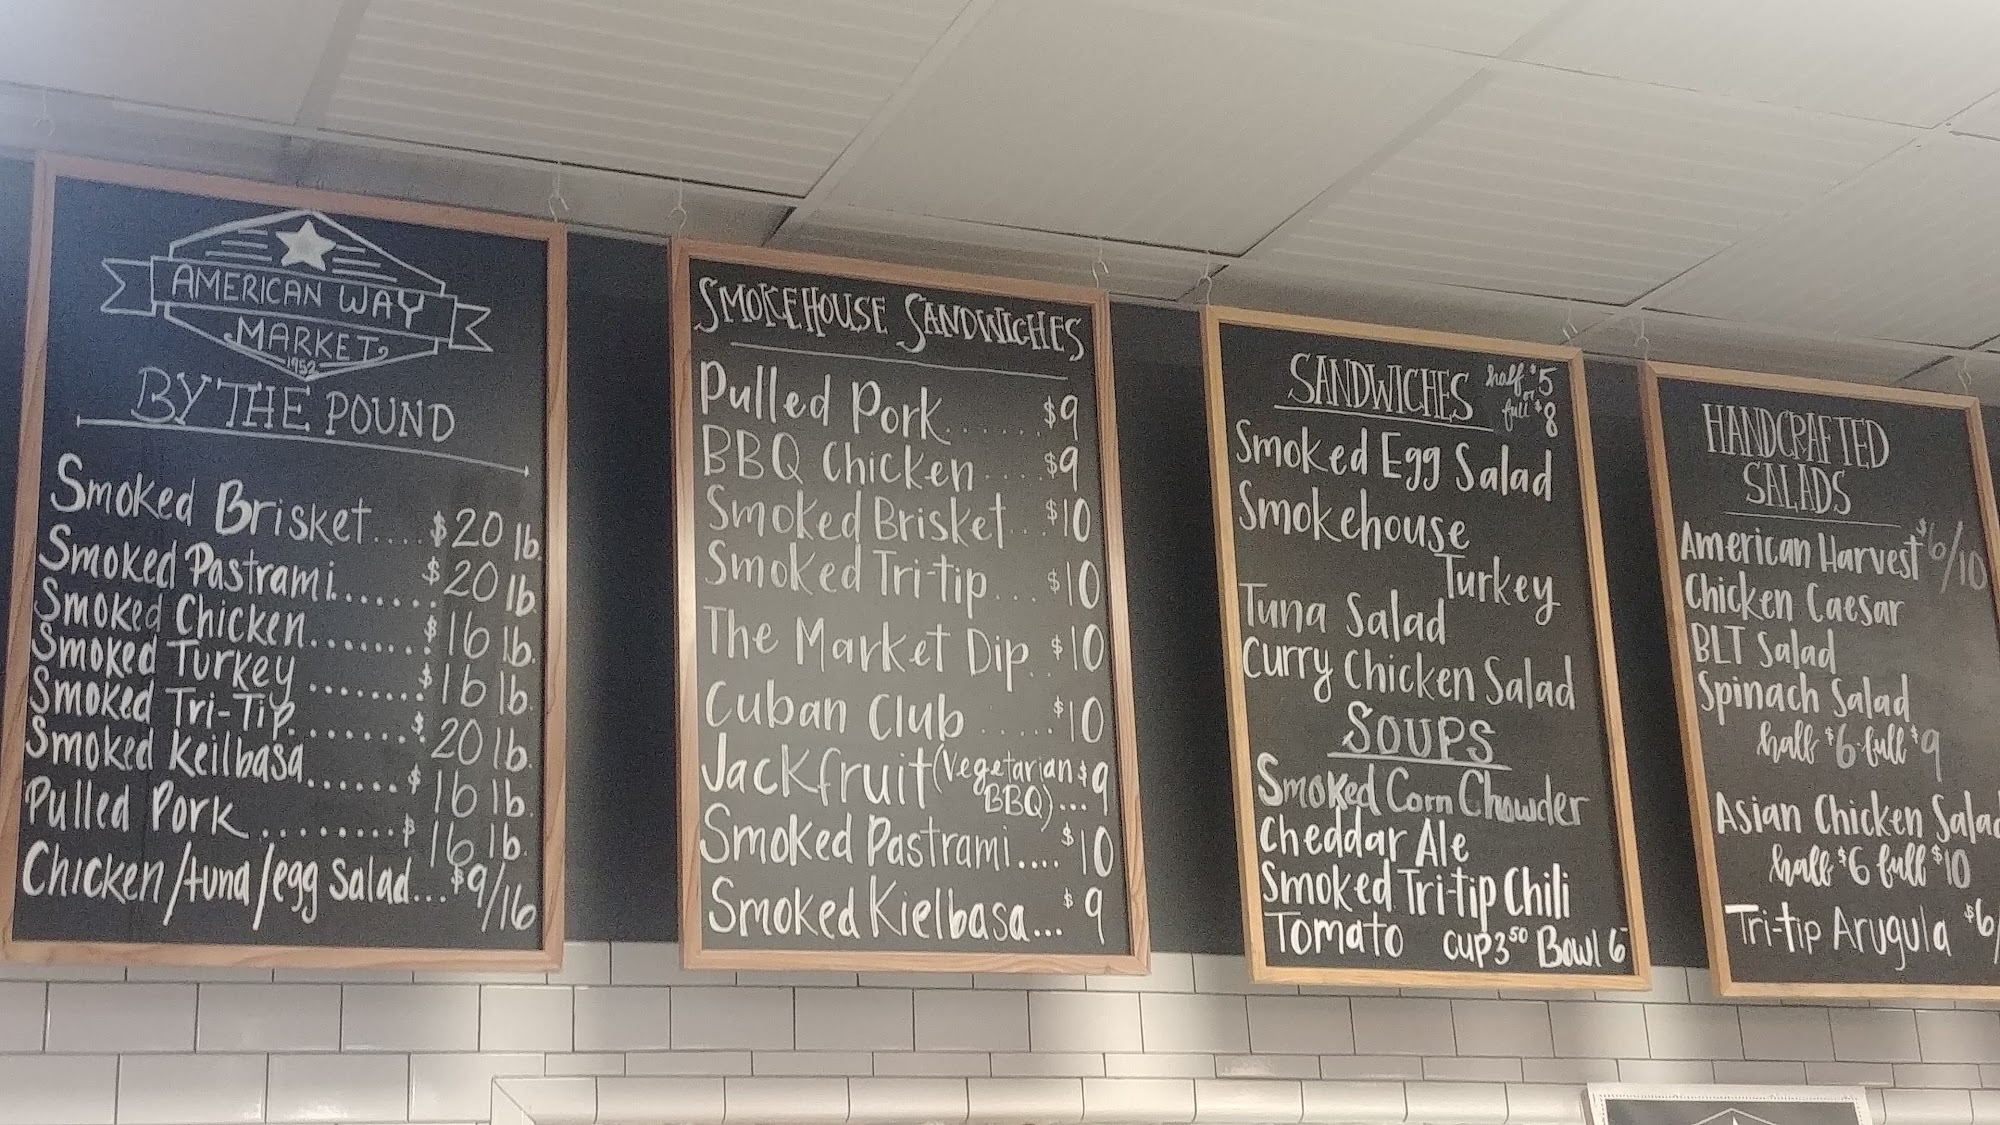 AMERICAN WAY
MARKET
1952
BY THE POUND
Smoked Brisket.... $20 lb.
Smoked Pastrami....... $20 lb.
Smoked Chicken........ $16 lb.
Smoked Turkey ........ $16 lb.
Smoked Tri-Tip........ $20 lb.
Smoked Keilbasa...... $16 lb.
Pulled Pork ......... $16 lb.
Chicken/tuna/egg Salad... $9/16
SMOKEHOUSE SANDWICHES
Pulled Pork...... $9
BBQ Chicken.... $9
Smoked Brisket.. $10
Smoked Tri-tip... $10
The Market Dip.. $10
Cuban Club ..... $10
Jackfruit (Vegetarian $9
BBQ)...
Smoked Pastrami.... $10
Smoked Kielbasa... $9
SANDWICHES half $5
or
full $8
Smoked Egg Salad
Smokehouse
Turkey
Tuna Salad
Curry Chicken Salad
SOUPS
Smoked Corn Chowder
Cheddar Ale
Smoked Tri-tip Chili
Tomato cup 3.50 Bowl 6-
HANDCRAFTED
SALADS
American Harvest $6/10
Chicken Caesar
BLT Salad
Spinach Salad
half $6 full $9
Asian Chicken Salad
half $6 full $10
Tri-tip Arugula $6/